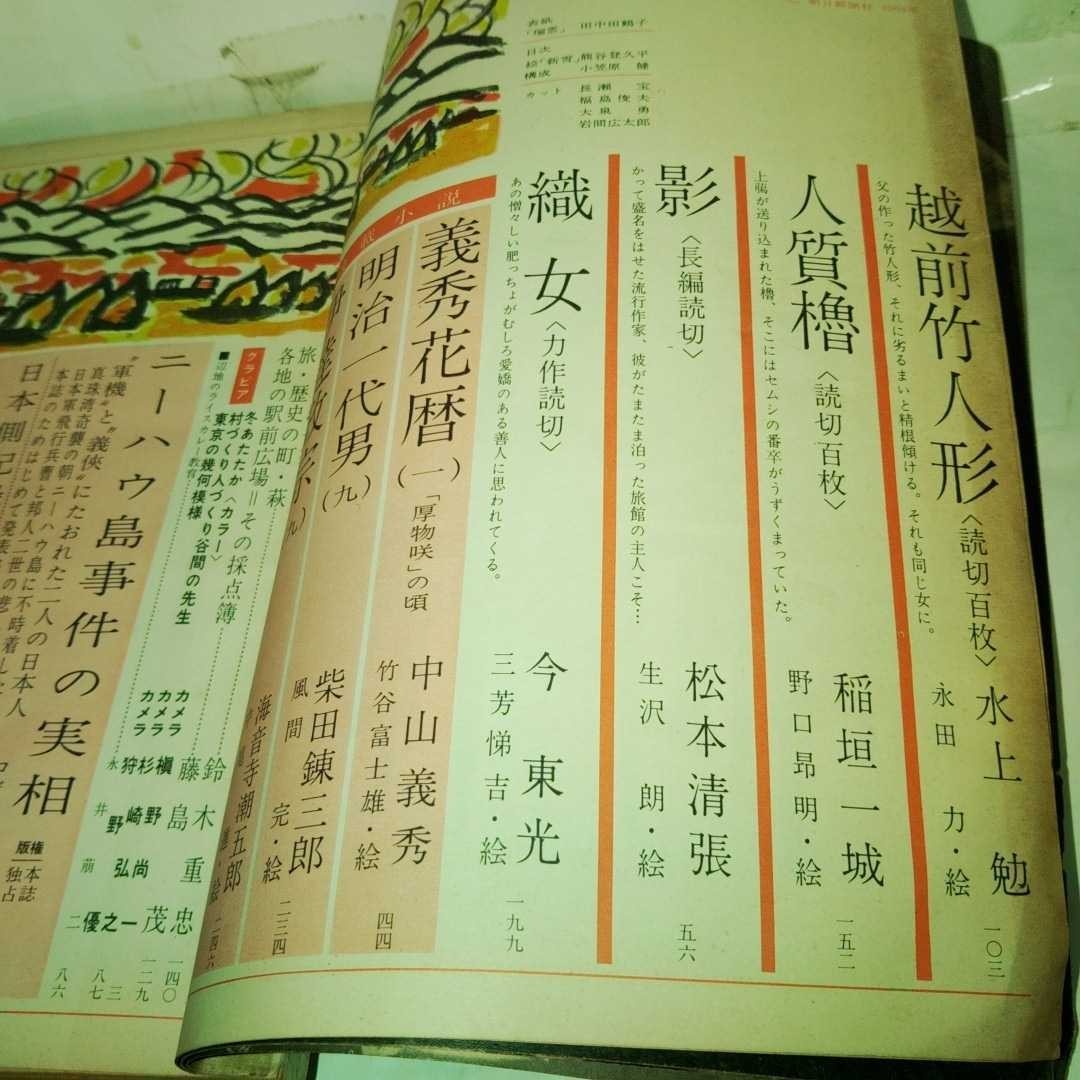 表紙「瑞雲」 田中田鶴子
目次
絵「新雪」 熊谷登久平
構成 小笠原 健
カット 長瀬 宝
福島俊夫
大泉 勇
岩間広太郎
越前竹人形〈読切百枚〉 水上 勉
父の作った竹人形、それに劣るまいと精根傾ける。それも同じ女に。 永田 力・絵 一〇三
人質櫓〈読切百枚〉 稲垣一城
上﨟が送り込まれた櫓、そこにはセムシの番卒がうずくまっていた。 野口昂明・絵 一五二
影〈長編読切〉 松本清張
かつて盛名をはせた流行作家、彼がたまたま泊った旅館の主人こそ… 生沢 朗・絵 五六
織女〈力作読切〉 今 東光
あの憎々しい肥っちょがむしろ愛嬌のある善人に思われてくる。 三芳悌吉・絵 一九九
小説
義秀花暦(一)「厚物咲」の頃 中山義秀
竹谷富士雄・絵 四四
明治一代男(九) 柴田錬三郎
風間 完・絵 二三四
海音寺潮五郎
・絵 二四六
旅・歴史の町・萩
各地の駅前広場=その採点簿
グラビア
冬あたたか〈カラー〉
村づくり人づくり
東京の幾何模様
谷間の先生
■辺地のライスカレー教育
カメラ
カメラ
カメラ
鈴木重忠 一四〇
藤島茂 一二九
ニーハウ島事件の実相
"軍機"と"義侠"にたおれた二人の日本人
真珠湾奇襲の朝ニーハウ島に不時着した
日本軍飛行兵曹と邦人二世の悲
本誌のためはじめて発表
日本側記
版権本誌独占
八六